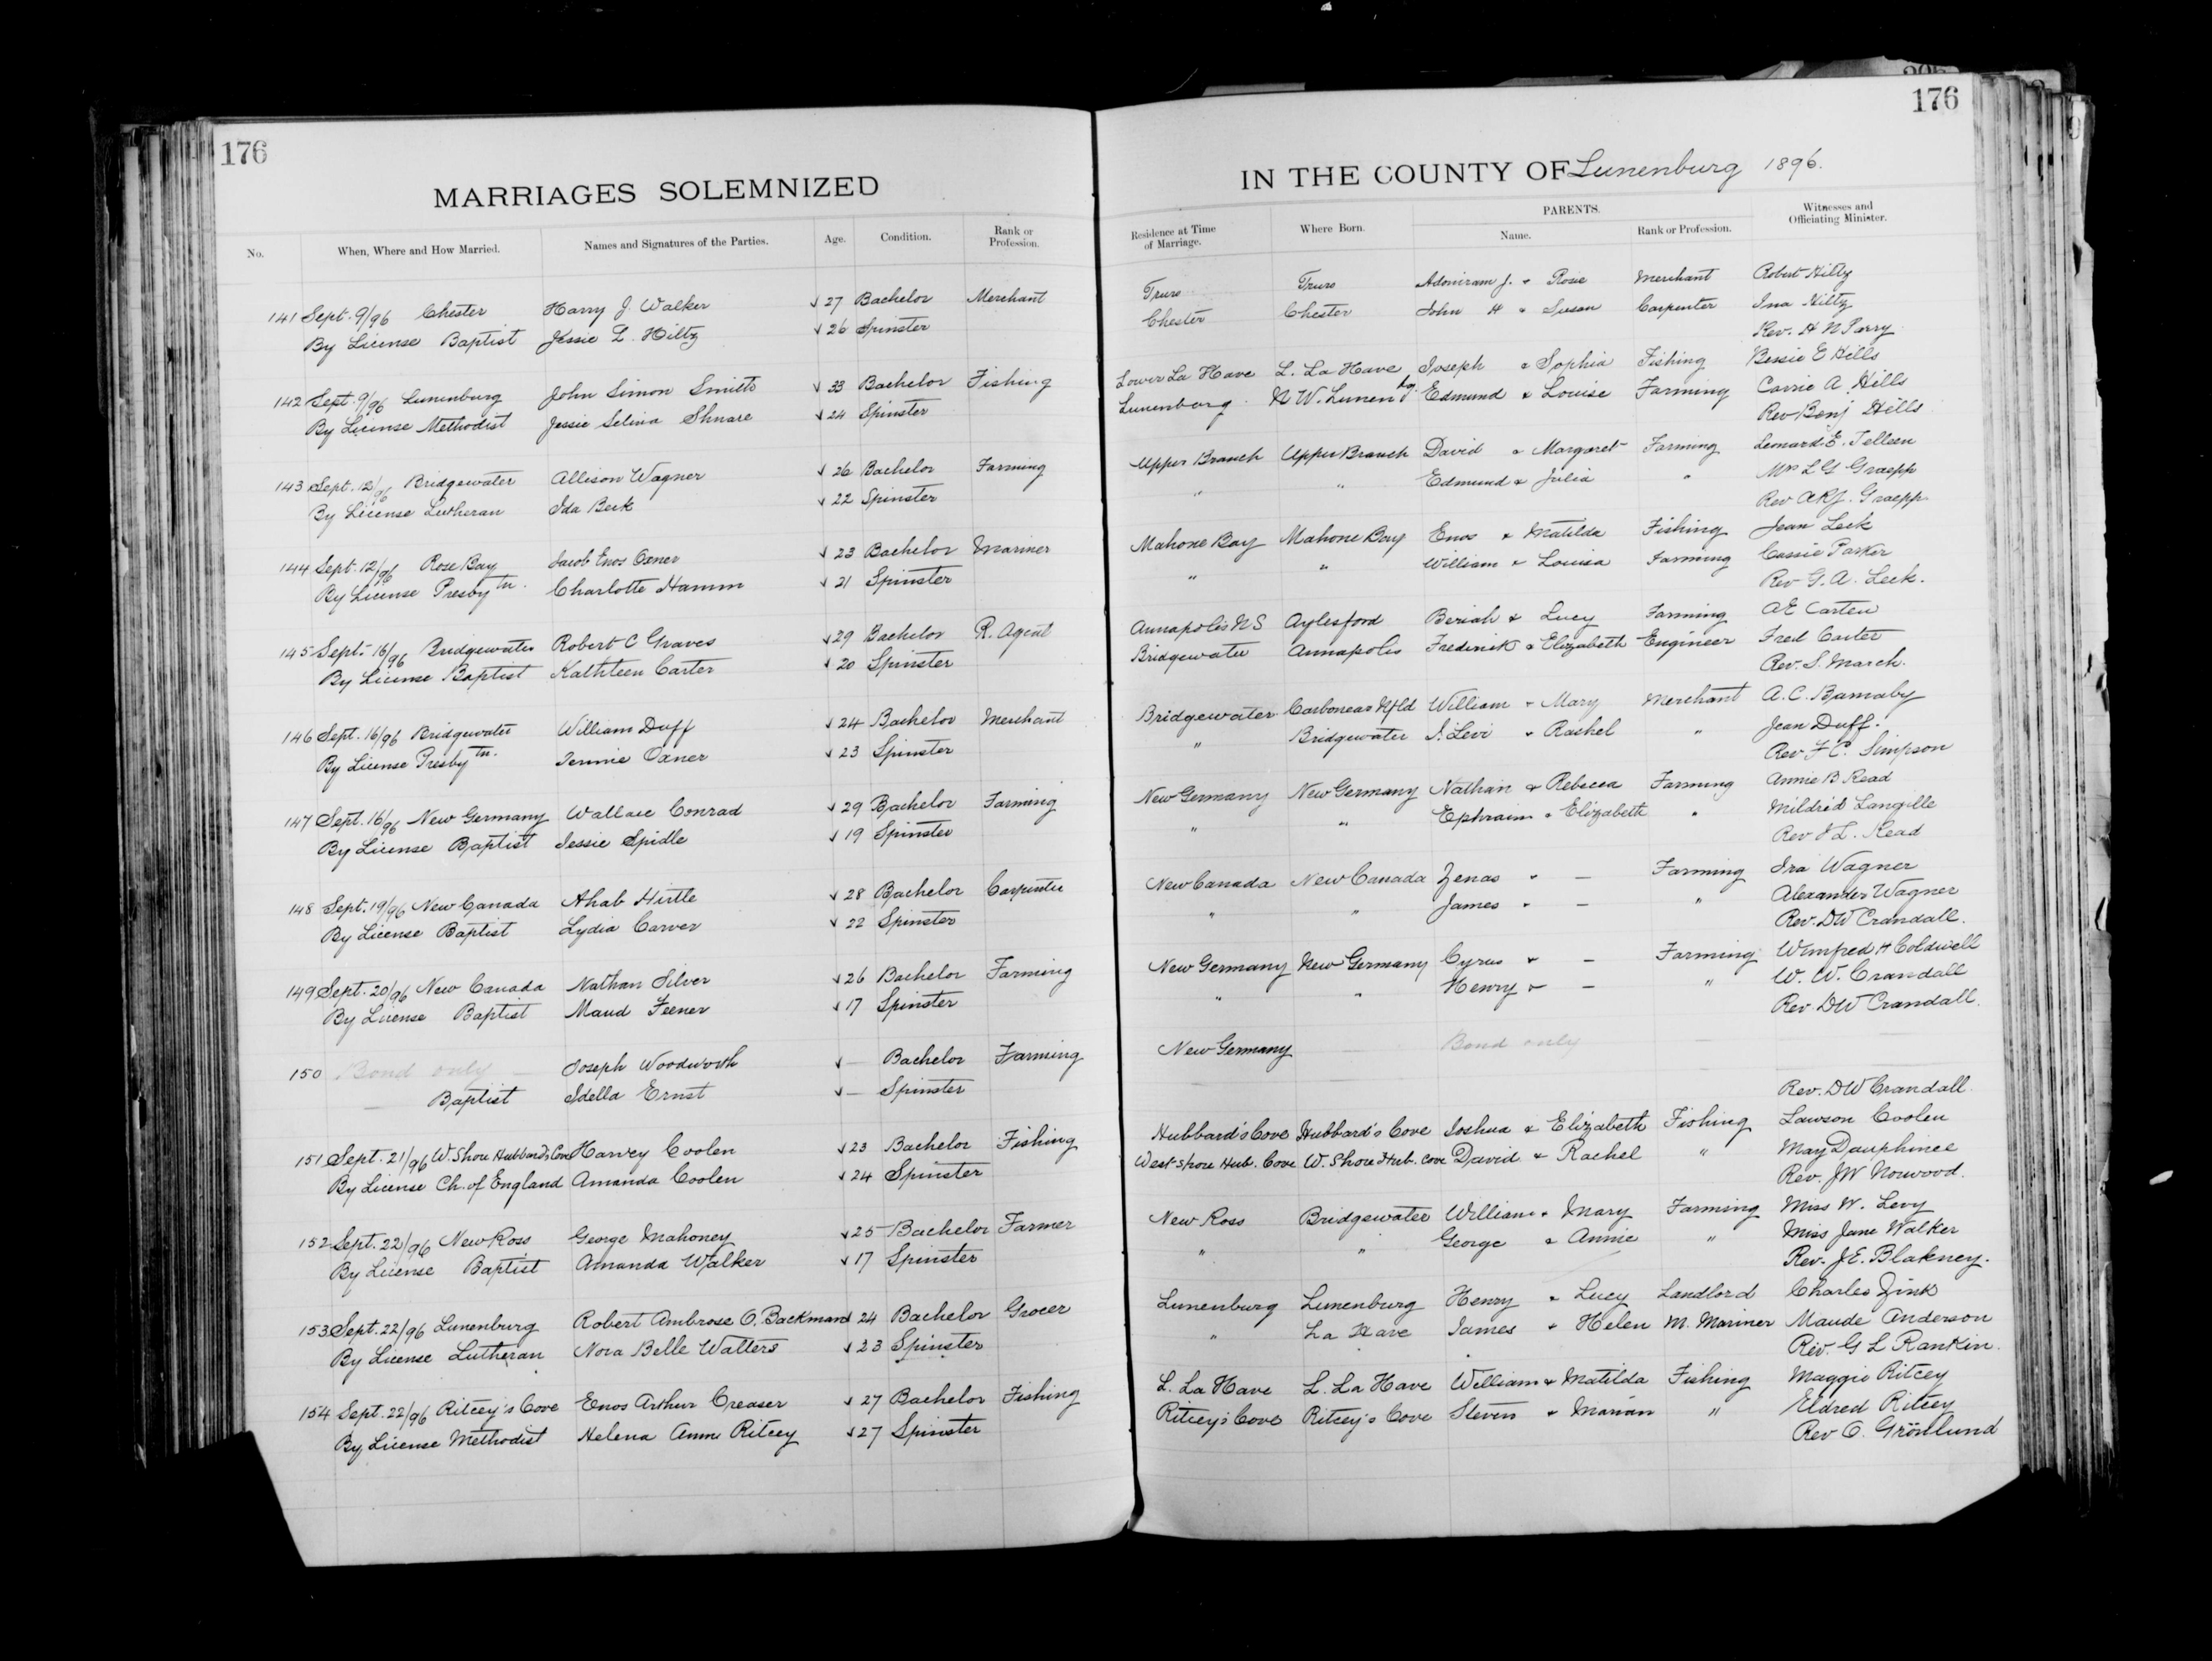 176
MARRIAGES SOLEMNIZED
No. When, Where and How Married. Names and Signatures of the Parties. Age. Condition. Rank or Profession.
141 Sept. 9/96 Chester Harry J. Walker 27 Bachelor Merchant
By License Baptist Jessie L. Hiltz 26 Spinster
142 Sept. 9/96 Lunenburg John Simon Smith 33 Bachelor Fishing
By License Methodist Jessie Selina Shnare 24 Spinster
143 Sept. 12/96 Bridgewater Allison Wagner 26 Bachelor Farming
By License Lutheran Ida Beck 22 Spinster
144 Sept. 12/96 Rose Bay Jacob Enos Oxner 23 Bachelor Mariner
By License Presbytn. Charlotte Hamm 21 Spinster
145 Sept. 16/96 Bridgewater Robert C Graves 29 Bachelor R. Agent
By License Baptist Kathleen Carter 20 Spinster
146 Sept. 16/96 Bridgewater William Duff 24 Bachelor Merchant
By License Presbytn. Jennie Oxner 23 Spinster
147 Sept. 16/96 New Germany Wallace Conrad 29 Bachelor Farming
By License Baptist Jessie Spidle 19 Spinster
148 Sept. 19/96 New Canada Ahab Hirtle 28 Bachelor Carpenter
By License Baptist Lydia Carver 22 Spinster
149 Sept. 20/96 New Canada Nathan Silver 26 Bachelor Farming
By License Baptist Maud Feener 17 Spinster
150 Bond only — Joseph Woodworth — Bachelor Farming
— Baptist Idella Ernst — Spinster
151 Sept. 21/96 W. Shore Hubbard's Cove Harvey Coolen 23 Bachelor Fishing
By License Ch. of England Amanda Coolen 24 Spinster
152 Sept. 22/96 New Ross George Mahoney 25 Bachelor Farmer
By License Baptist Amanda Walker 17 Spinster
153 Sept. 22/96 Lunenburg Robert Ambrose O. Backmand 24 Bachelor Grocer
By License Lutheran Nora Belle Walters 23 Spinster
154 Sept. 22/96 Ritcey's Cove Enos Arthur Creaser 27 Bachelor Fishing
By License Methodist Helena Ann Ritcey 27 Spinster
176
IN THE COUNTY OF Lunenburg 1896.
Residence at Time of Marriage. Where Born. PARENTS. Name. Rank or Profession. Witnesses and Officiating Minister.
Truro Truro Adoniram J. & Rosie Merchant Robert Hiltz
Chester Chester John H & Susan Carpenter Ina Hiltz
Rev. H N Parry
Lower La Have L. La Have Joseph & Sophia Fishing Bessie E Hills
Lunenburg N W. Lunenbg. Edmund & Louise Farming Carrie A. Hills
Rev Benj Hills
Upper Branch Upper Branch David & Margaret Farming Leonard E.
" " Edmund & Julia " Mrs L G Graepp
Rev A R J. Graepp
Mahone Bay Mahone Bay Enos & Matilda Fishing Jean Leck
" " William & Louisa Farming Cassie Parker
Rev G. A. Leck.
Annapolis N S Aylesford Beriah & Lucy Farming A E Carten
Bridgewater Annapolis Frederick & Elizabeth Engineer Fred Carter
Rev. S. March.
Bridgewater Carbonear Nfld William & Mary Merchant A. C. Barnaby
" Bridgewater J. Levi & Rachel " Jean Duff.
Rev. F C. Simpson
New Germany New Germany Nathan & Rebecca Farming Annie B Read
" " Ephraim & Elizabeth " Mildred Langille
Rev J L. Read
New Canada New Canada Zenas & — Farming Ira Wagner
" " James & — " Alexander Wagner
Rev. D W Crandall.
New Germany New Germany Cyrus & — Farming Winifred H Coldwell
" " Henry & — " W. W. Crandall
Rev D W Crandall.
New Germany — Bond only —
Rev. D W Crandall.
Hubbard's Cove Hubbard's Cove Joshua & Elizabeth Fishing Lawson Coolen
West Shore Hub. Cove W. Shore Hub. Cove David & Rachel " May Dauphinee
Rev. J W Norwood.
New Ross Bridgewater William & Mary Farming Miss W. Levy
" " George & Annie " Miss Jane Walker
Rev. J. E. Blakney.
Lunenburg Lunenburg Henry & Lucy Landlord Charles Zink
" La Have James & Helen M. Mariner Maude Anderson
Rev. G L Rankin.
L. La Have L. La Have William & Matilda Fishing Maggie Ritcey
Ritcey's Cove Ritcey's Cove Steven & Marian " Eldred Ritcey
Rev O. Grönlund